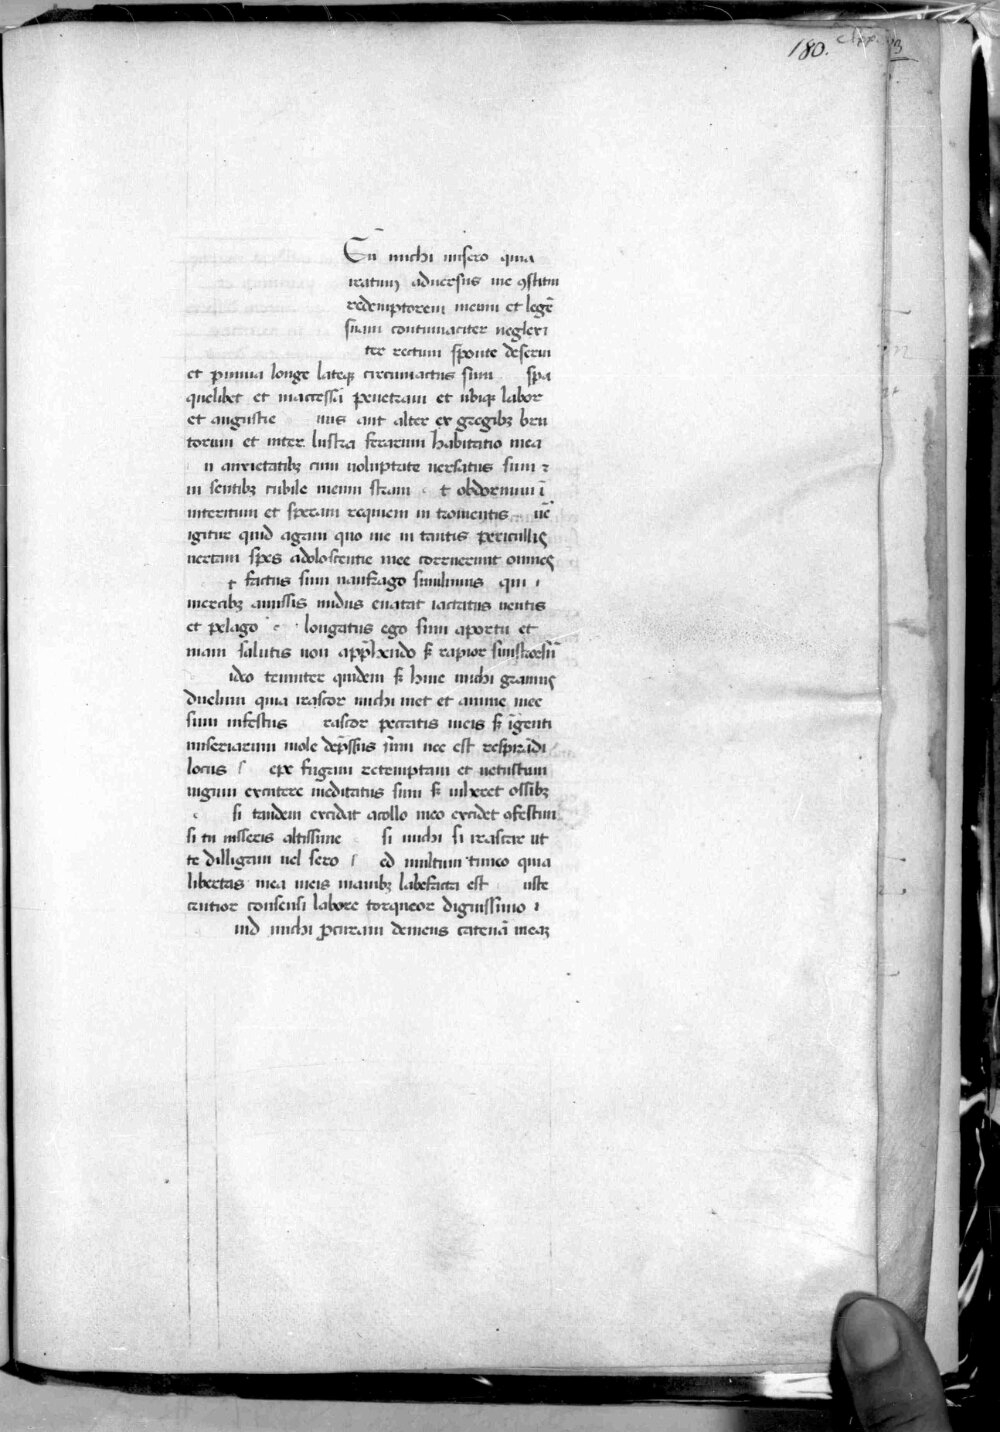 180.
Eu᷑ michi misero quia
iratum aduersus me ꝯstitui
redemptorem meum et legē
suam contumaciter neglexi
ter rectum sponte deserui
et p inuia longe lateqꝫ circumactus sum spa
quelibet et inaccessā penetraui et ubiqꝫ labor
et angustie nus aut alter ex gregibꝫ bru
torum et inter lustra ferarum habitatio mea
n anxietatibꝫ cum uoluptate uersatus sum ⁊
in sentibꝫ cubile meum straui t obdormiui ī
interitum et speraui requiem in tromentis ūc
igitur quid agam quo me in tantis periculis
uertam spes adoloscentie mee corruerunt omnes
t factus sum naufrago simillimus qui
mercibꝫ amissis nudus enatat iactatus uentis
et pelago longatus ego sum aportu et
uiam salutis non apphendo sꝫ rapior sinistrorsū
ideo tenuiter quidem sꝫ hinc michi grauius
duelum quia irascor michi met et anime mee
sum infestus rascor peccatis meis sꝫ īgenti
miseriarum mole dep̄ssus sum nec est respirādi
locus epe fugam retemptaui et uetustum
iugum excutere meditatus sum sꝫ inheret ossibꝫ
si tandem excidat acollo meo excidet ꝯfestim
si tu iusseris altissime si michi si irascar ut
te dilligam uel sero ed multum timeo quia
libertas mea meis manibꝫ labefacta est uste
crutior consensi labore torqueor dignissimo
uid michi ꝓcuraui demens catenā meaꝫ